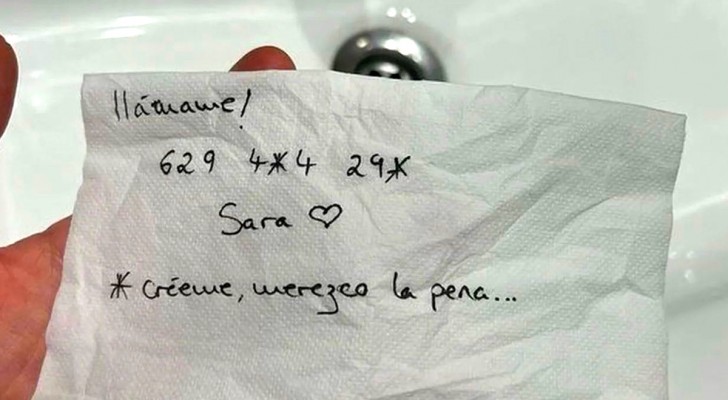 llámame!
629 4*4 29*
Sara ♡
* créeme, merezco la pena...